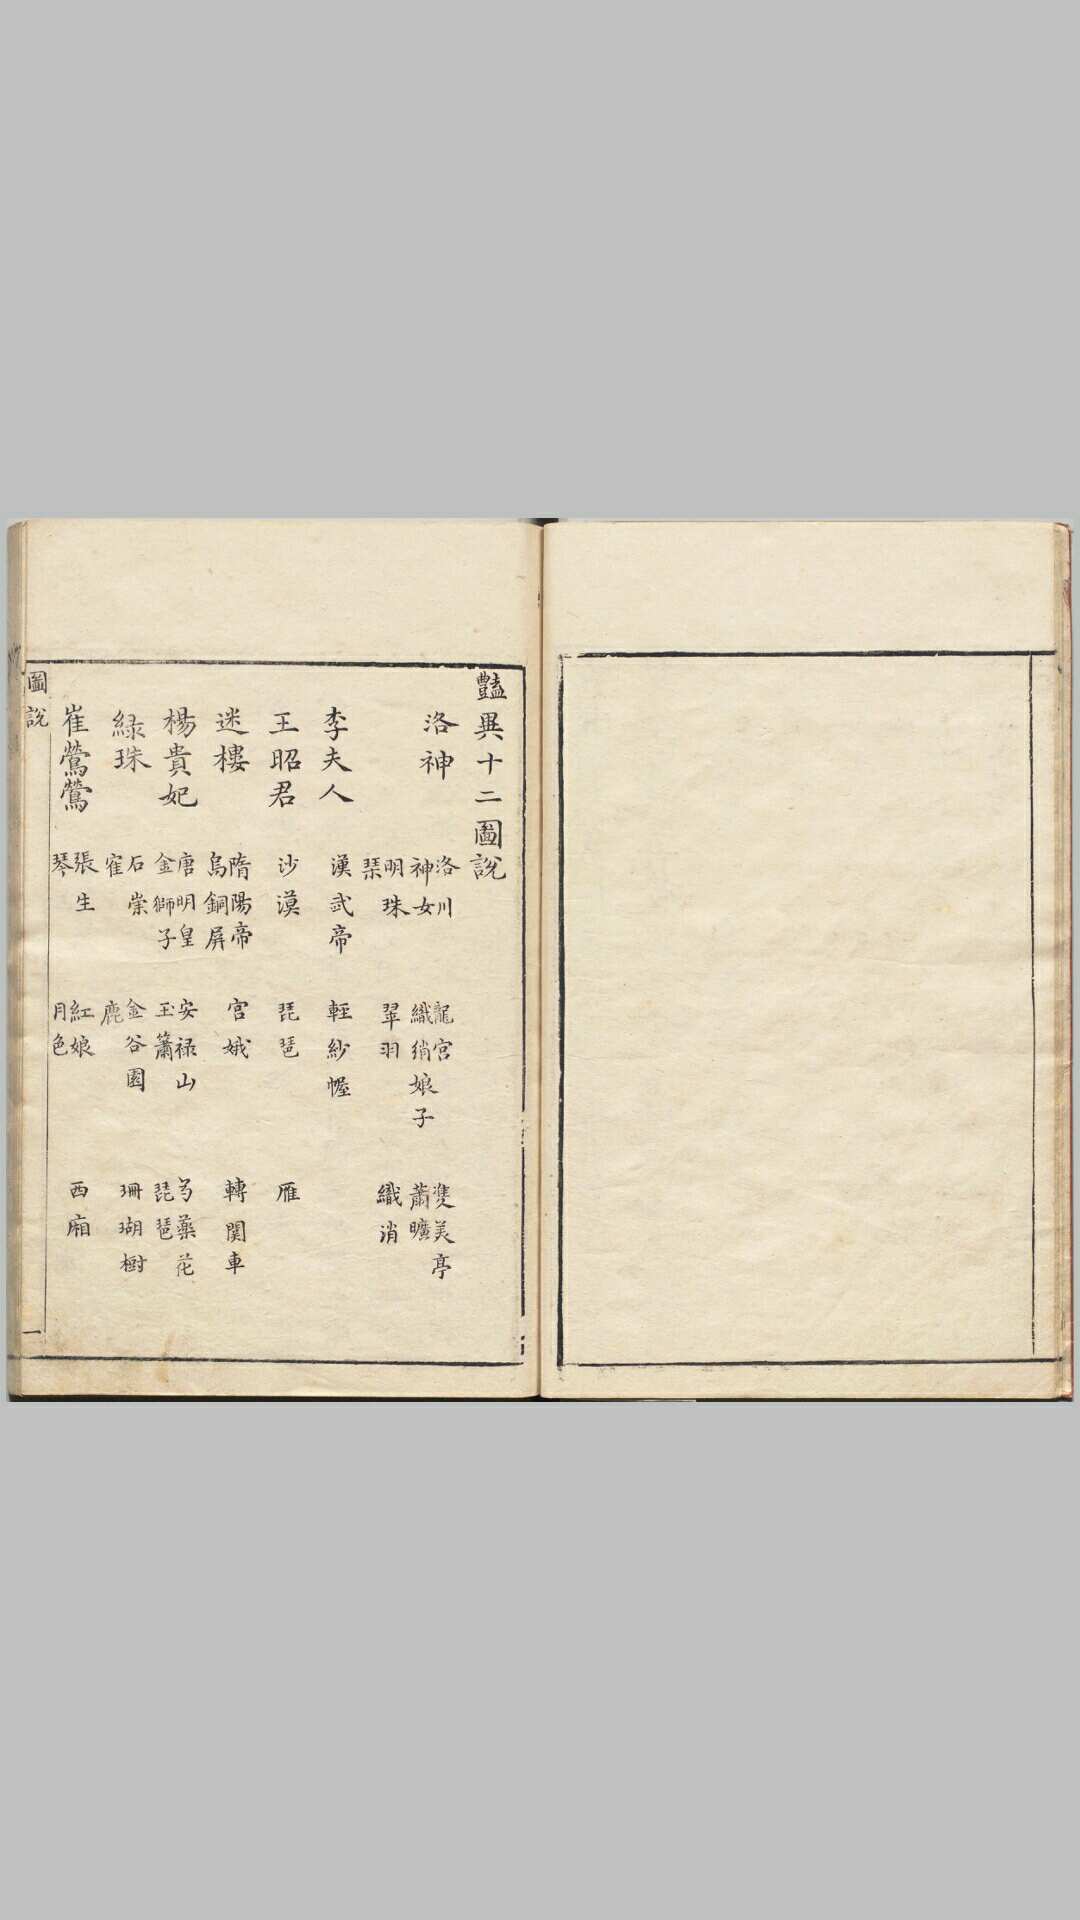 豔異十二圖說
洛神
洛川 龍宮 雙美亭
神女 織綃娘子 蕭曠
明珠 翠羽 織消
琹
李夫人 漢武帝 輕紗幄
王昭君 沙漠 琵琶 雁
迷樓
隋陽帝 宮娥 轉関車
烏銅屏
楊貴妃
唐明皇 安禄山 芍藥花
金獅子 玉簫 琵琶
綠珠
石崇 金谷園 珊瑚樹
寉 鹿
崔鶯鶯
張生 紅娘 西廂
琴 月色
圖說 一